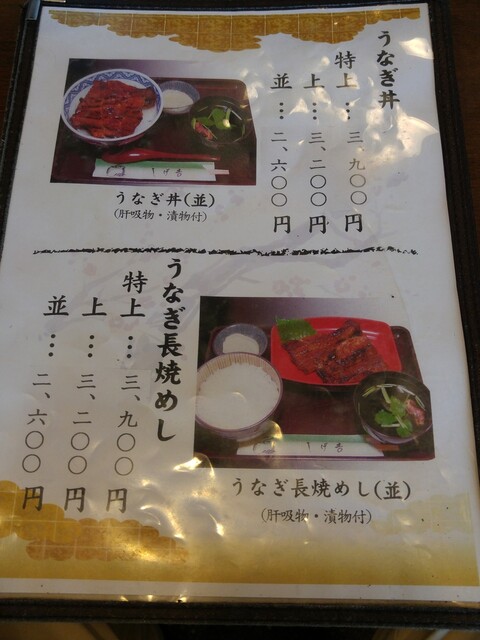 うなぎ丼
特上…三、九〇〇円
上…三、二〇〇円
並…二、六〇〇円
うなぎ丼(並)
(肝吸物・漬物付)
うなぎ長焼めし
特上…三、九〇〇円
上…三、二〇〇円
並…二、六〇〇円
うなぎ長焼めし(並)
(肝吸物・漬物付)